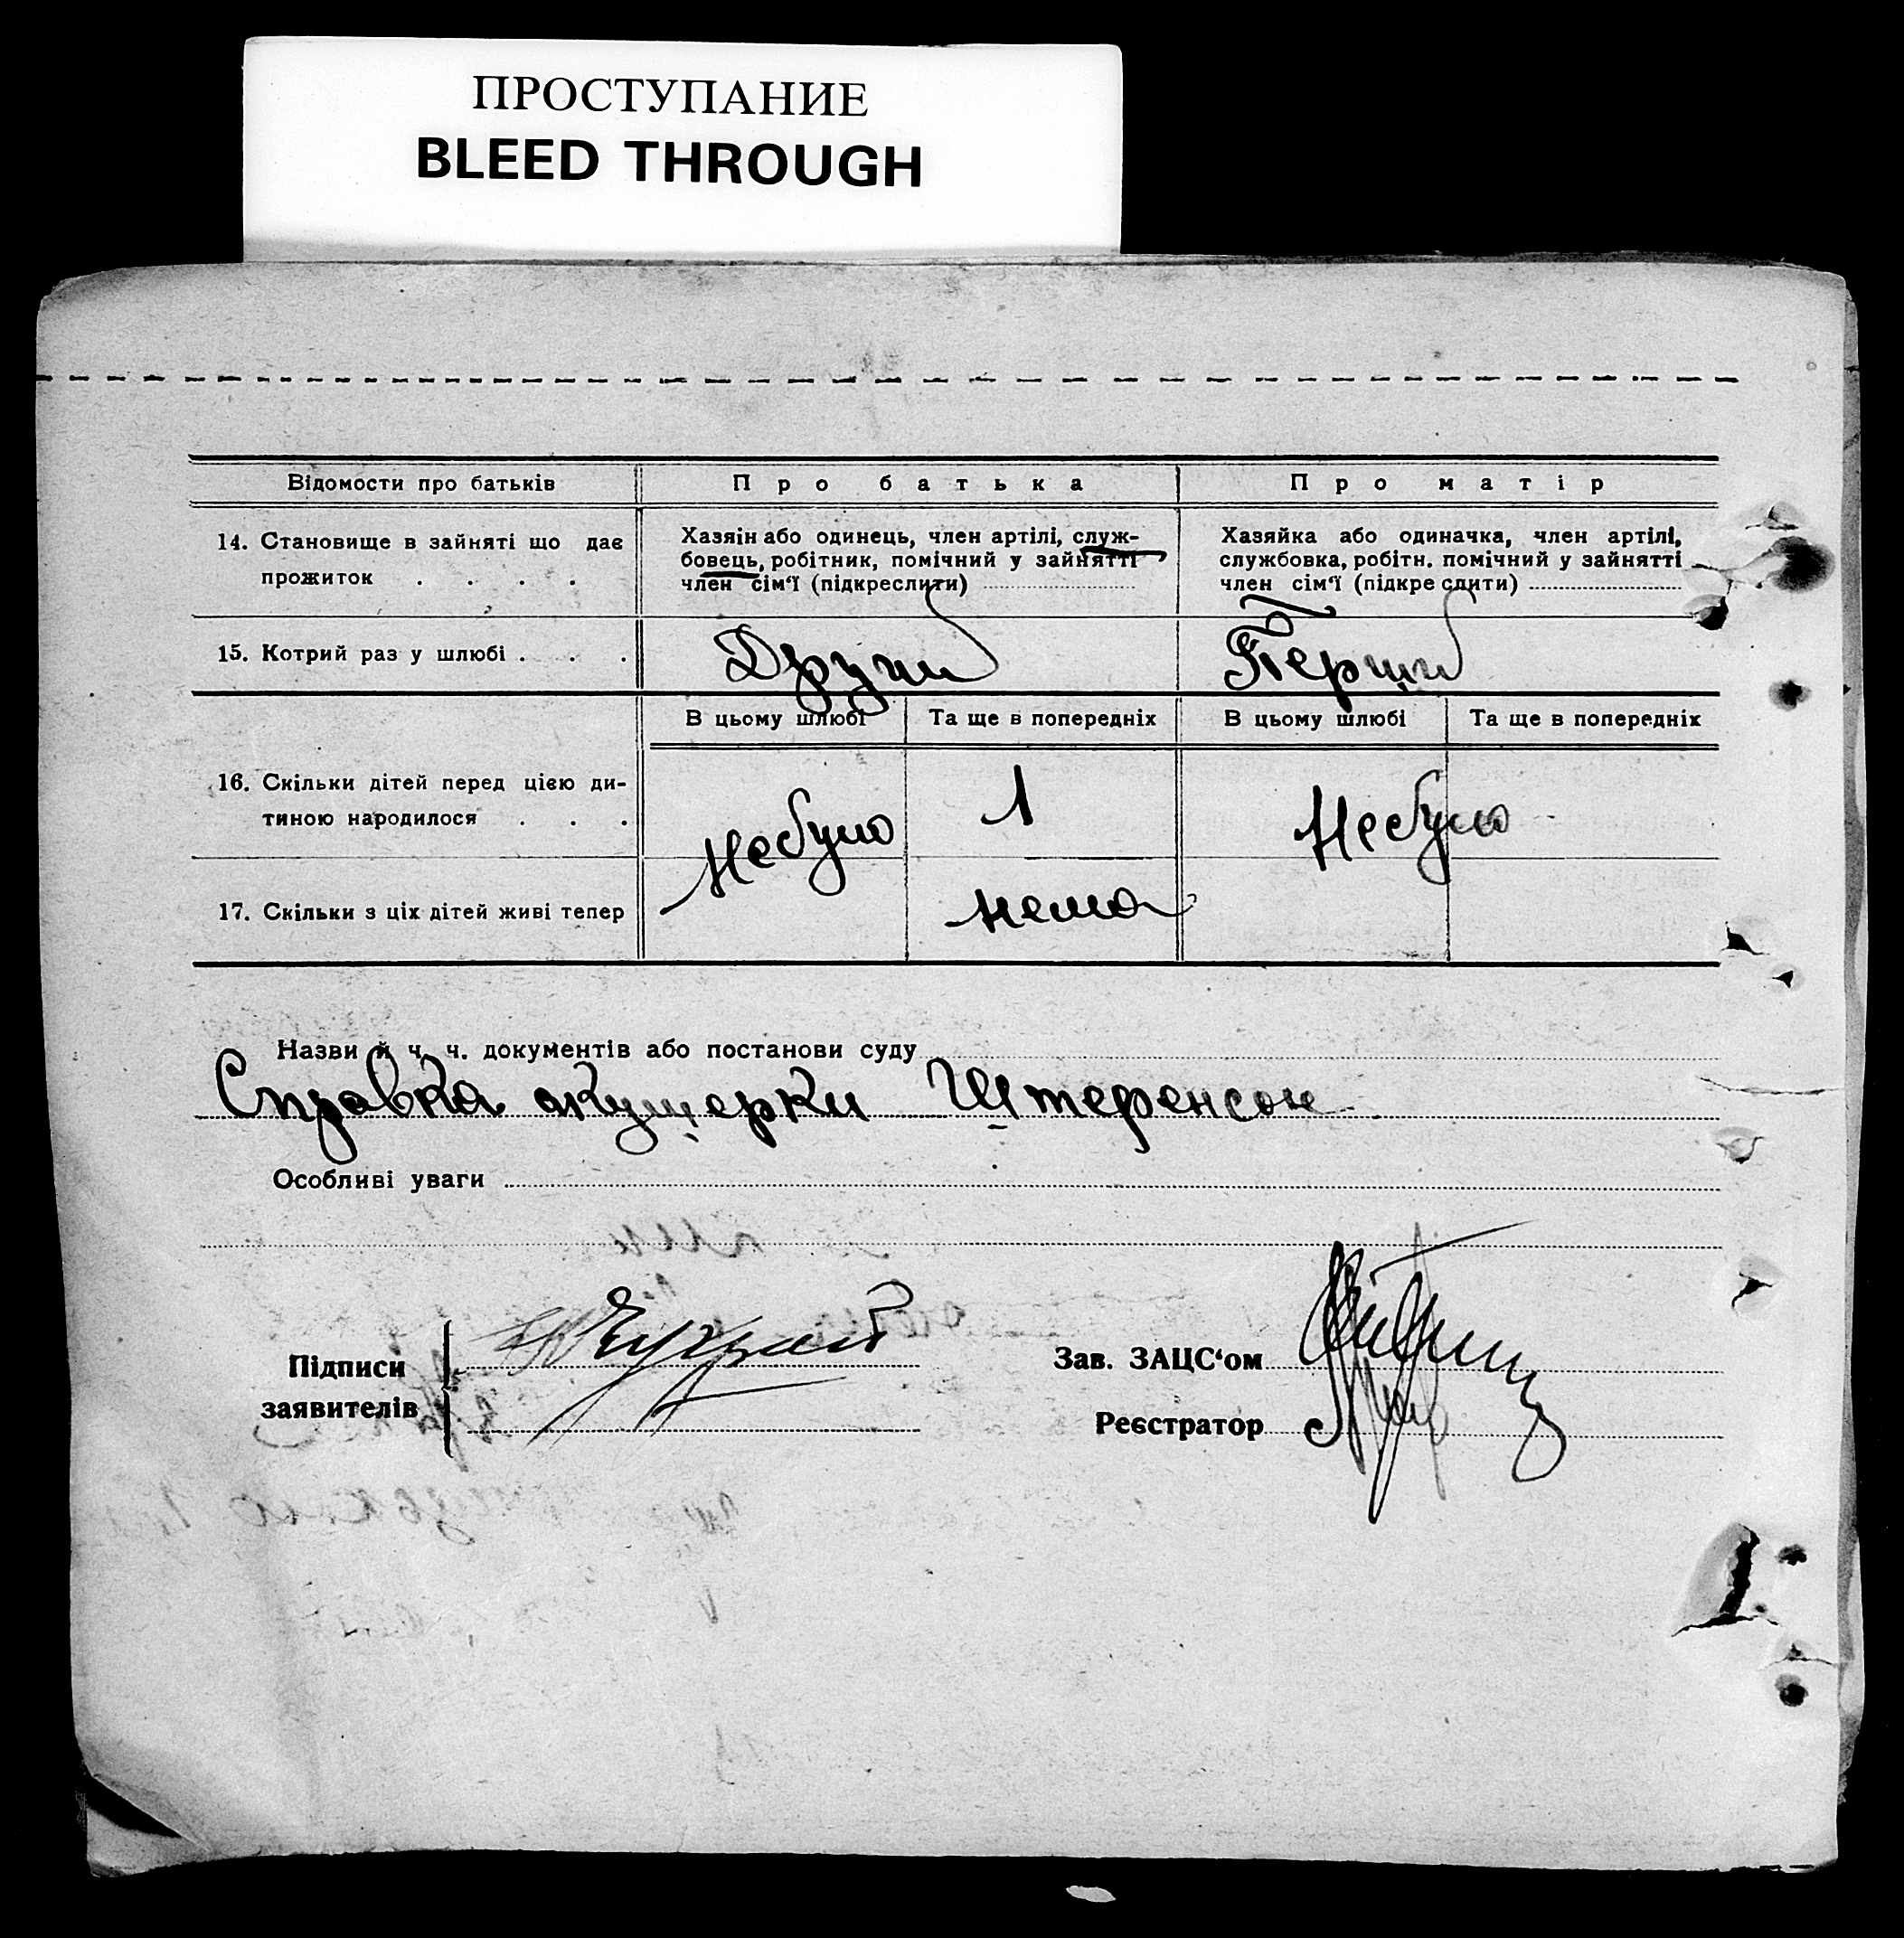 ПРОСТУПАНИЕ
BLEED THROUGH
Відомости про батьків
Про батька
Про матір
14. Становище в зайняті що дає
прожиток . . . .
Хазяїн або одинець, член артілі, служ-
бовець, робітник, помічний у зайнятті
член сім‘ї (підкреслити)
Хазяйка або одиначка, член артілі,
службовка, робітн. помічний у зайнятті
член сім‘ї (підкреслити)
15. Котрий раз у шлюбі . . .
Другий
Перший
В цьому шлюбі
Та ще в попередніх
В цьому шлюбі
Та ще в попередніх
16. Скільки дітей перед цією ди-
тиною народилося . . .
Небуло
1
Небуло
17. Скільки з ціх дітей живі тепер
нема
Назви й ч. ч. документів або постанови суду
Справка акушерки Штеренсон
Особливі уваги
Підписи
заявителів
Зав. ЗАЦС‘ом
Реєстратор